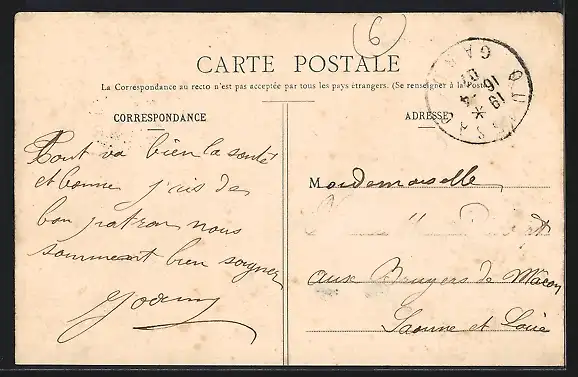 6
CARTE POSTALE
La Correspondance au recto n'est pas acceptée par tous les pays étrangers. (Se renseigner à la Poste)
CORRESPONDANCE
ADRESSE
QUISSAC
GARD
16 19
Tout va bien la santé
et bonne j'uis de
bon patron nous
sommesnt bien soigner
Mademoiselle
aux Bruyers de Mâcon
Saonne et Loire